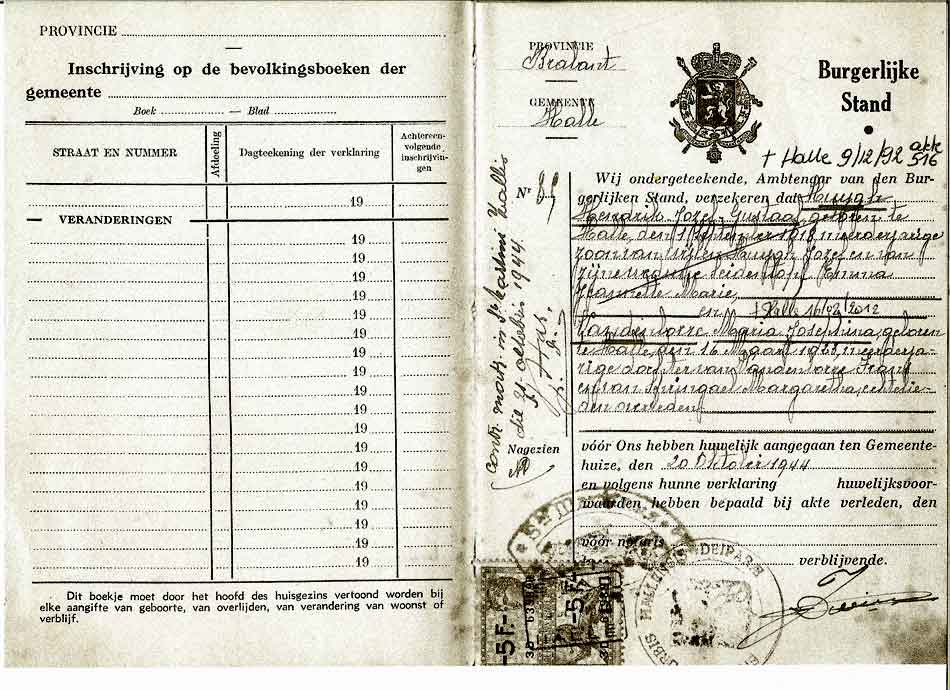 PROVINCIE
Inschrijving op de bevolkingsboeken der
gemeente
Boek — Blad
STRAAT EN NUMMER
Afdeeling
Dagteekening der verklaring
Achtereen-
volgende
inschrijvin-
gen
19
VERANDERINGEN
19
19
19
19
19
19
19
19
19
19
19
19
19
19
19
19
19
19
Dit boekje moet door het hoofd des huisgezins vertoond worden bij
elke aangifte van geboorte, van overlijden, van verandering van woonst of
verblijf.
PROVINCIE
Brabant
GEMEENTE
Halle
Burgerlijke
Stand
† Halle 9/12/92 akte
516
Nr 89
Wij ondergeteekende, Ambtenaar van den Bur-
gerlijken Stand, verzekeren dat Huygh
Hendrik Jozef Gustaaf, geboren te
Halle, den 1 September 1918, meerderjarige
zoon van wijlen Huygh Jozef en van
zijne weduwe Seidentopf Emma
Jeannette Marie,
en † Halle 16/02/2012
Vandenlorre Maria Josephina, geboren
te Halle, den 16 Maart 1923, meerderja-
rige dochter van Vandenlorre Frans
en van Springael Margaretha, echtelie-
den overleden
contr. matr. in St Martini Hallis
die 21 octobris 1944.
Nagezien
vóór Ons hebben huwelijk aangegaan ten Gemeente-
huize, den 20 Oktober 1944
en volgens hunne verklaring huwelijksvoor-
waarden hebben bepaald bij akte verleden, den
vóór notaris
te verblijvende.
-5F-
-5F-
DEIPARÆ